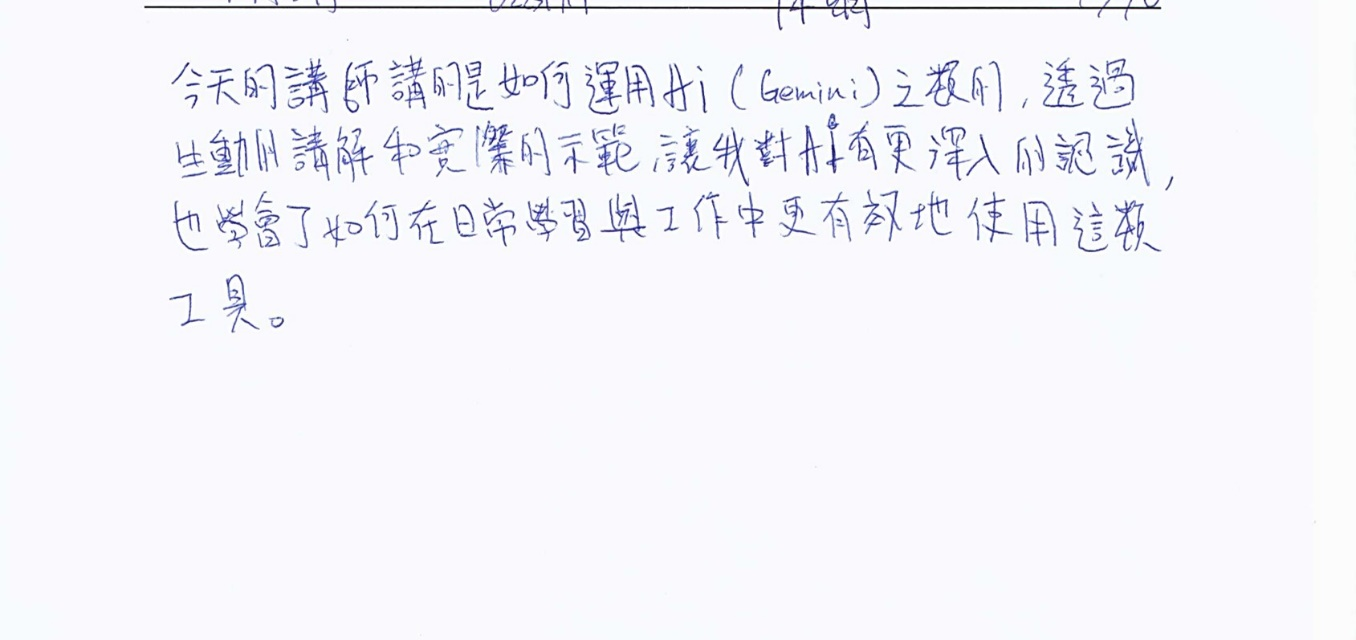 今天的講師講的是如何運用Ai（Gemini）之類的，透過
生動的講解和實際的示範，讓我對Ai有更深入的認識，
也學會了如何在日常學習與工作中更有效地使用這類
工具。